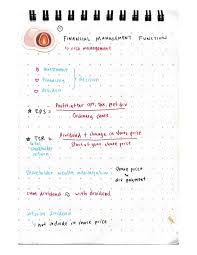 FINANCIAL MANAGEMENT FUNCTION
↳ risk management
investment
financing } decision
dividen
* EPS = Profit after opr, tax, pref div
Ordinary shares
* TSR = Dividend + change in share price
total shareholder return
Start of year share price
Shareholder wealth maximization
Share price
div payment
cum dividend with dividend
interim dividend
↳ not include in share price